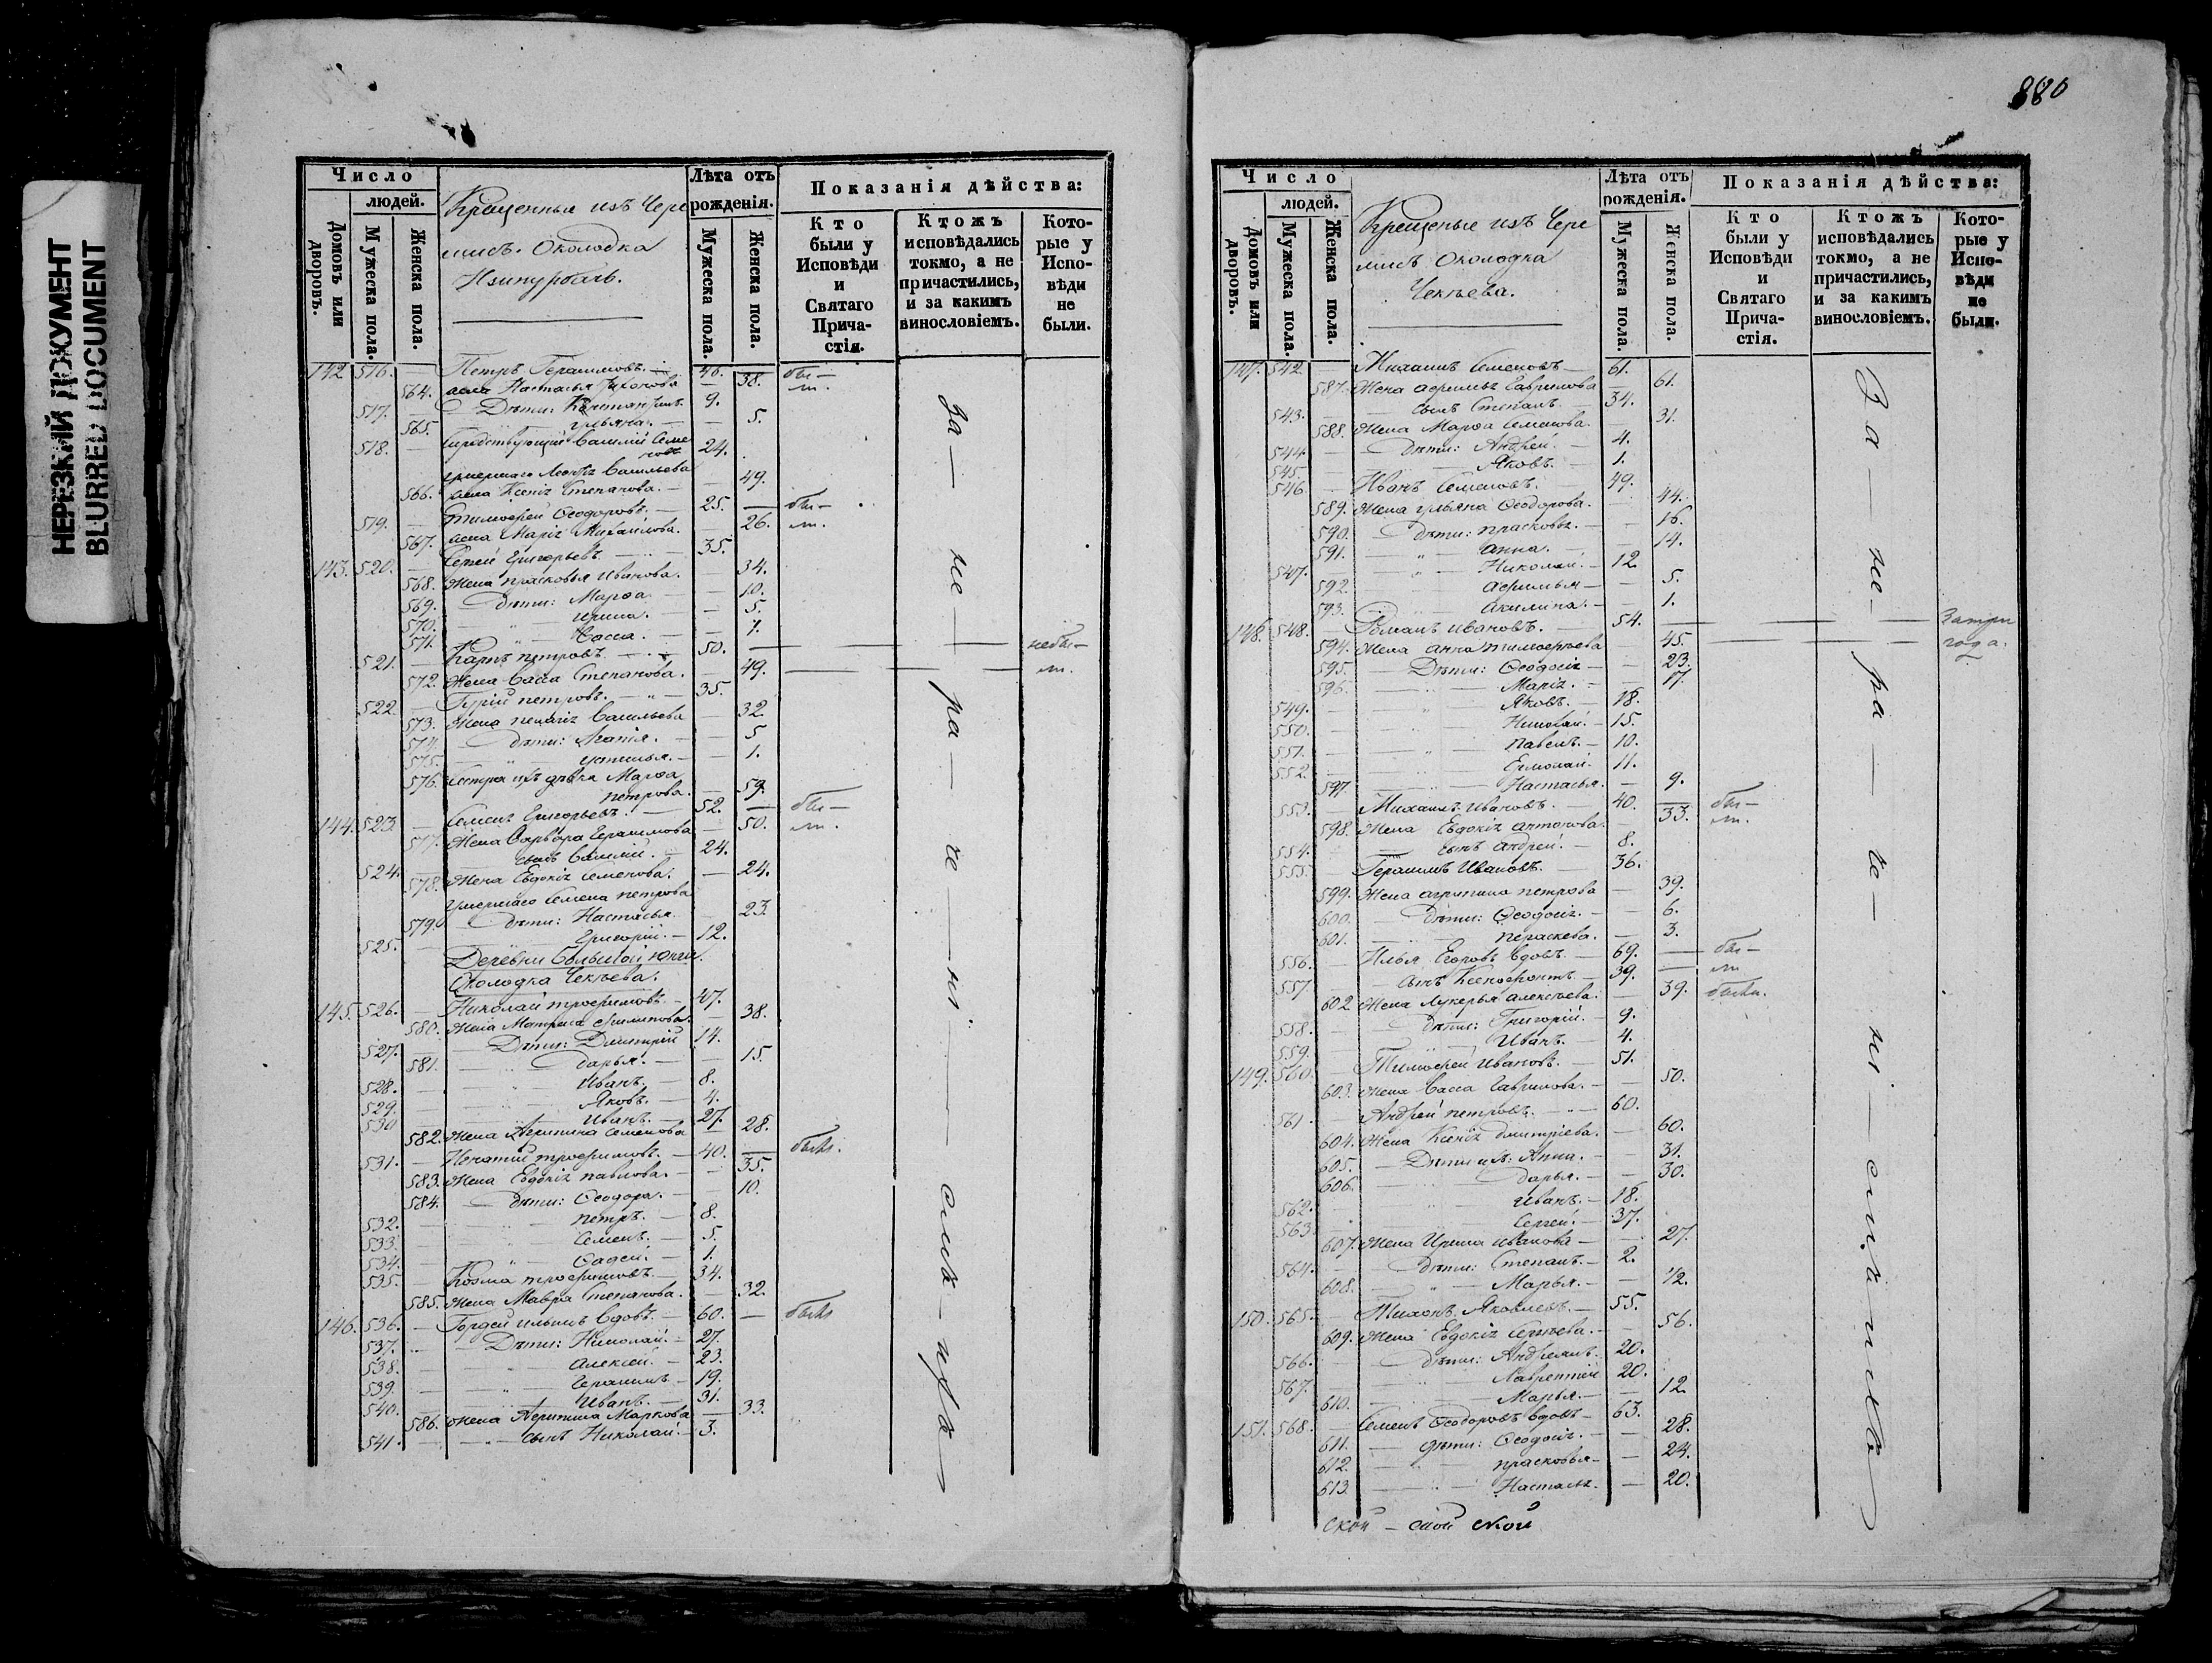 НЕРЕЗКИЙ ДОКУМЕНТ
BLURRED DOCUMENT
Число
людей.
Домовъ или дворовъ.
Мужеска пола.
Женска пола.
Крещенныя изъ Чере
мисъ. Околодка
Лѣта отъ рожденія.
Мужеска пола.
Женска пола.
Показанія дѣйства:
Кто были у Исповѣди и Святаго Прича-стія.
Ктожъ исповѣдались токмо, а не причастились, и за какимъ винословіемъ.
Кото-рые у Испо-вѣди не были.
142. 516. — Петръ Герасимовъ. 46. бы—
564. жена Настасья — 38. ли.
517. — Дѣти: 9.
565. — Ульяна. — 5.
518. — Василій Семе
новъ 24.
умершаго Васильева
566. жена Ксенія Степанова. — 49.
519. — Тимофей Ѳеодоровъ. — 25. — бы—
567. жена Марія Михайлова. 26. ли.
143. 520. — Сергей Григорьевъ. — 35.
568. Жена Прасковья Иванова. — 34.
569. — Дѣти: Марѳа — 10.
570. — Ирина. — 5.
571. — Васса. — 1.
521. — Карпъ Петровъ. — 50. — небы—
572. Жена Васса Степанова. — 49. — ли.
522. — Гурій Петровъ. — 35.
573. Жена Пелагія Васильева — 32
574. — дѣти: Агапія. — 5
575. — Устинья. — 1.
576. Сестра ихъ дѣвка Марѳа
Петрова. — 59.
144. 523. — Семенъ Григорьевъ. — 52. — бы—
577. Жена Варвара Герасимова — 50. ли.
524. — сынъ Василій. — 24.
578. Жена Евдокія Семенова. — 24.
Умершаго Семена Петрова
579. — дѣти: Настасья. 23.
525. — Григорій. — 12.
Деревни Большой Юнги.
Околодка Чекѣева.
145. 526. — Николай Трофимовъ. — 47.
580. Жена Матрена Филипова. — 38.
527. — Дѣти: Димитрій 14.
581. — Дарья. — 15.
528. — Иванъ. — 8.
529. — Яковъ. — 4.
530 — Иванъ. — 27.
582. Жена Агрипина Семенова — 28.
531. — Игнатій Трофимовъ. — 40. — были.
583. Жена Евдокія Павлова. — 35.
584. — дѣти: Ѳеодора. — 10.
532. — Петръ. — 8.
533. — Семенъ. — 5.
534. — Фадей. — 1.
535. — Козма Трофимовъ. — 34.
585. Жена Мавра Степанова. — 32.
146. 536. — Гордей Ильинъ Вдовъ. — 60. — были
537. — Дѣти: Николай. — 27.
538. — Алексей. — 23.
539. — Герасимъ — 19.
540. — Иванъ. — 31.
586. жена Агрипина Маркова — 33.
541. — сынъ Николай. — 3.
За — не — ра — че — ні —
880
Число
людей.
Домовъ или дворовъ.
Мужеска пола.
Женска пола.
Крещеные изъ Чере
мисъ Околодка
Чекѣева.
Лѣта отъ рожденія.
Мужеска пола.
Женска пола.
Показанія дѣйства:
Кто были у Исповѣди и Святаго Прича-стія.
Ктожъ исповѣдались токмо, а не причастились, и за какимъ винословіемъ.
Кото-рые у Испо-вѣди не были.
147. 542. — Михаилъ Семеновъ — 61.
587. Жена Афимья Гаврилова — 61.
543. — сынъ Степанъ. — 34.
588. Жена Марѳа Семенова. — 31.
544. — дѣти: Андрей. — 4.
545. — Яковъ. — 1.
546 — Иванъ Семеновъ. — 49.
589. Жена Ульяна Ѳеодорова. — 44.
590. — Дѣти: Прасковья. — 16.
591. — Анна. — 14.
547. — Николай. — 12.
592. — Афимья — 5.
593. — Акилина. — 1.
148. 548. — Романъ Ивановъ. — 54. — За три
594. Жена Анна Тимофеева 45. — года.
595. — Дѣти: Ѳеодосія — 23.
596. — Марія. — 17.
549. — Яковъ. — 18.
550. — Николай. — 15.
551. — Павелъ. — 10.
552. — Ермолай. 11.
597. — Настасья. — 9.
553. — Михаилъ Ивановъ. — 40. — бы—
598. Жена Евдокія Антонова. — 33. ли.
554. — сынъ Андрей. — 8.
555. — Герасимъ Ивановъ. — 36.
599. Жена Агрипина Петрова — 39.
600. — Дѣти: Ѳеодосія. — 6.
601. — Параскева. — 3.
556. — Илья Егоровъ вдовъ. — 69. — бы—
557 — сынъ Ксенофонтъ. — 39. — ли
602. Жена Лукерья Алексѣева. — 39. были.
558. — дѣти: Григорій. — 9.
559. — Иванъ. — 4.
149. 560. — Тимофей Ивановъ. — 51.
603. Жена Васса Гаврилова. — 50.
561. — Андрей Петровъ. — 60.
604. Жена Ксенія Димитріева. — 60.
605. — Дѣти ихъ: Анна. — 31.
606. — Дарья. — 30.
562. — Иванъ. — 18.
563. — Сергей. — 37.
607. Жена Ирина Иванова — 27.
564. — дѣти: Степанъ. — 2.
608. — Марья. — 1/2.
150. 565. — Тихонъ Яковлевъ. — 55.
609. Жена Евдокія Сергѣева. — 56.
566. — дѣти: Андреянъ. 20.
567. — Лаврентій 20.
610. — Марья. — 12.
151. 568. — Семенъ Ѳеодоровъ вдовъ — 63.
611. — дѣти: Ѳеодосія. — 28.
612. — Прасковья — 24.
613. — Настась. — 20.
За — не — ра — че — ні —